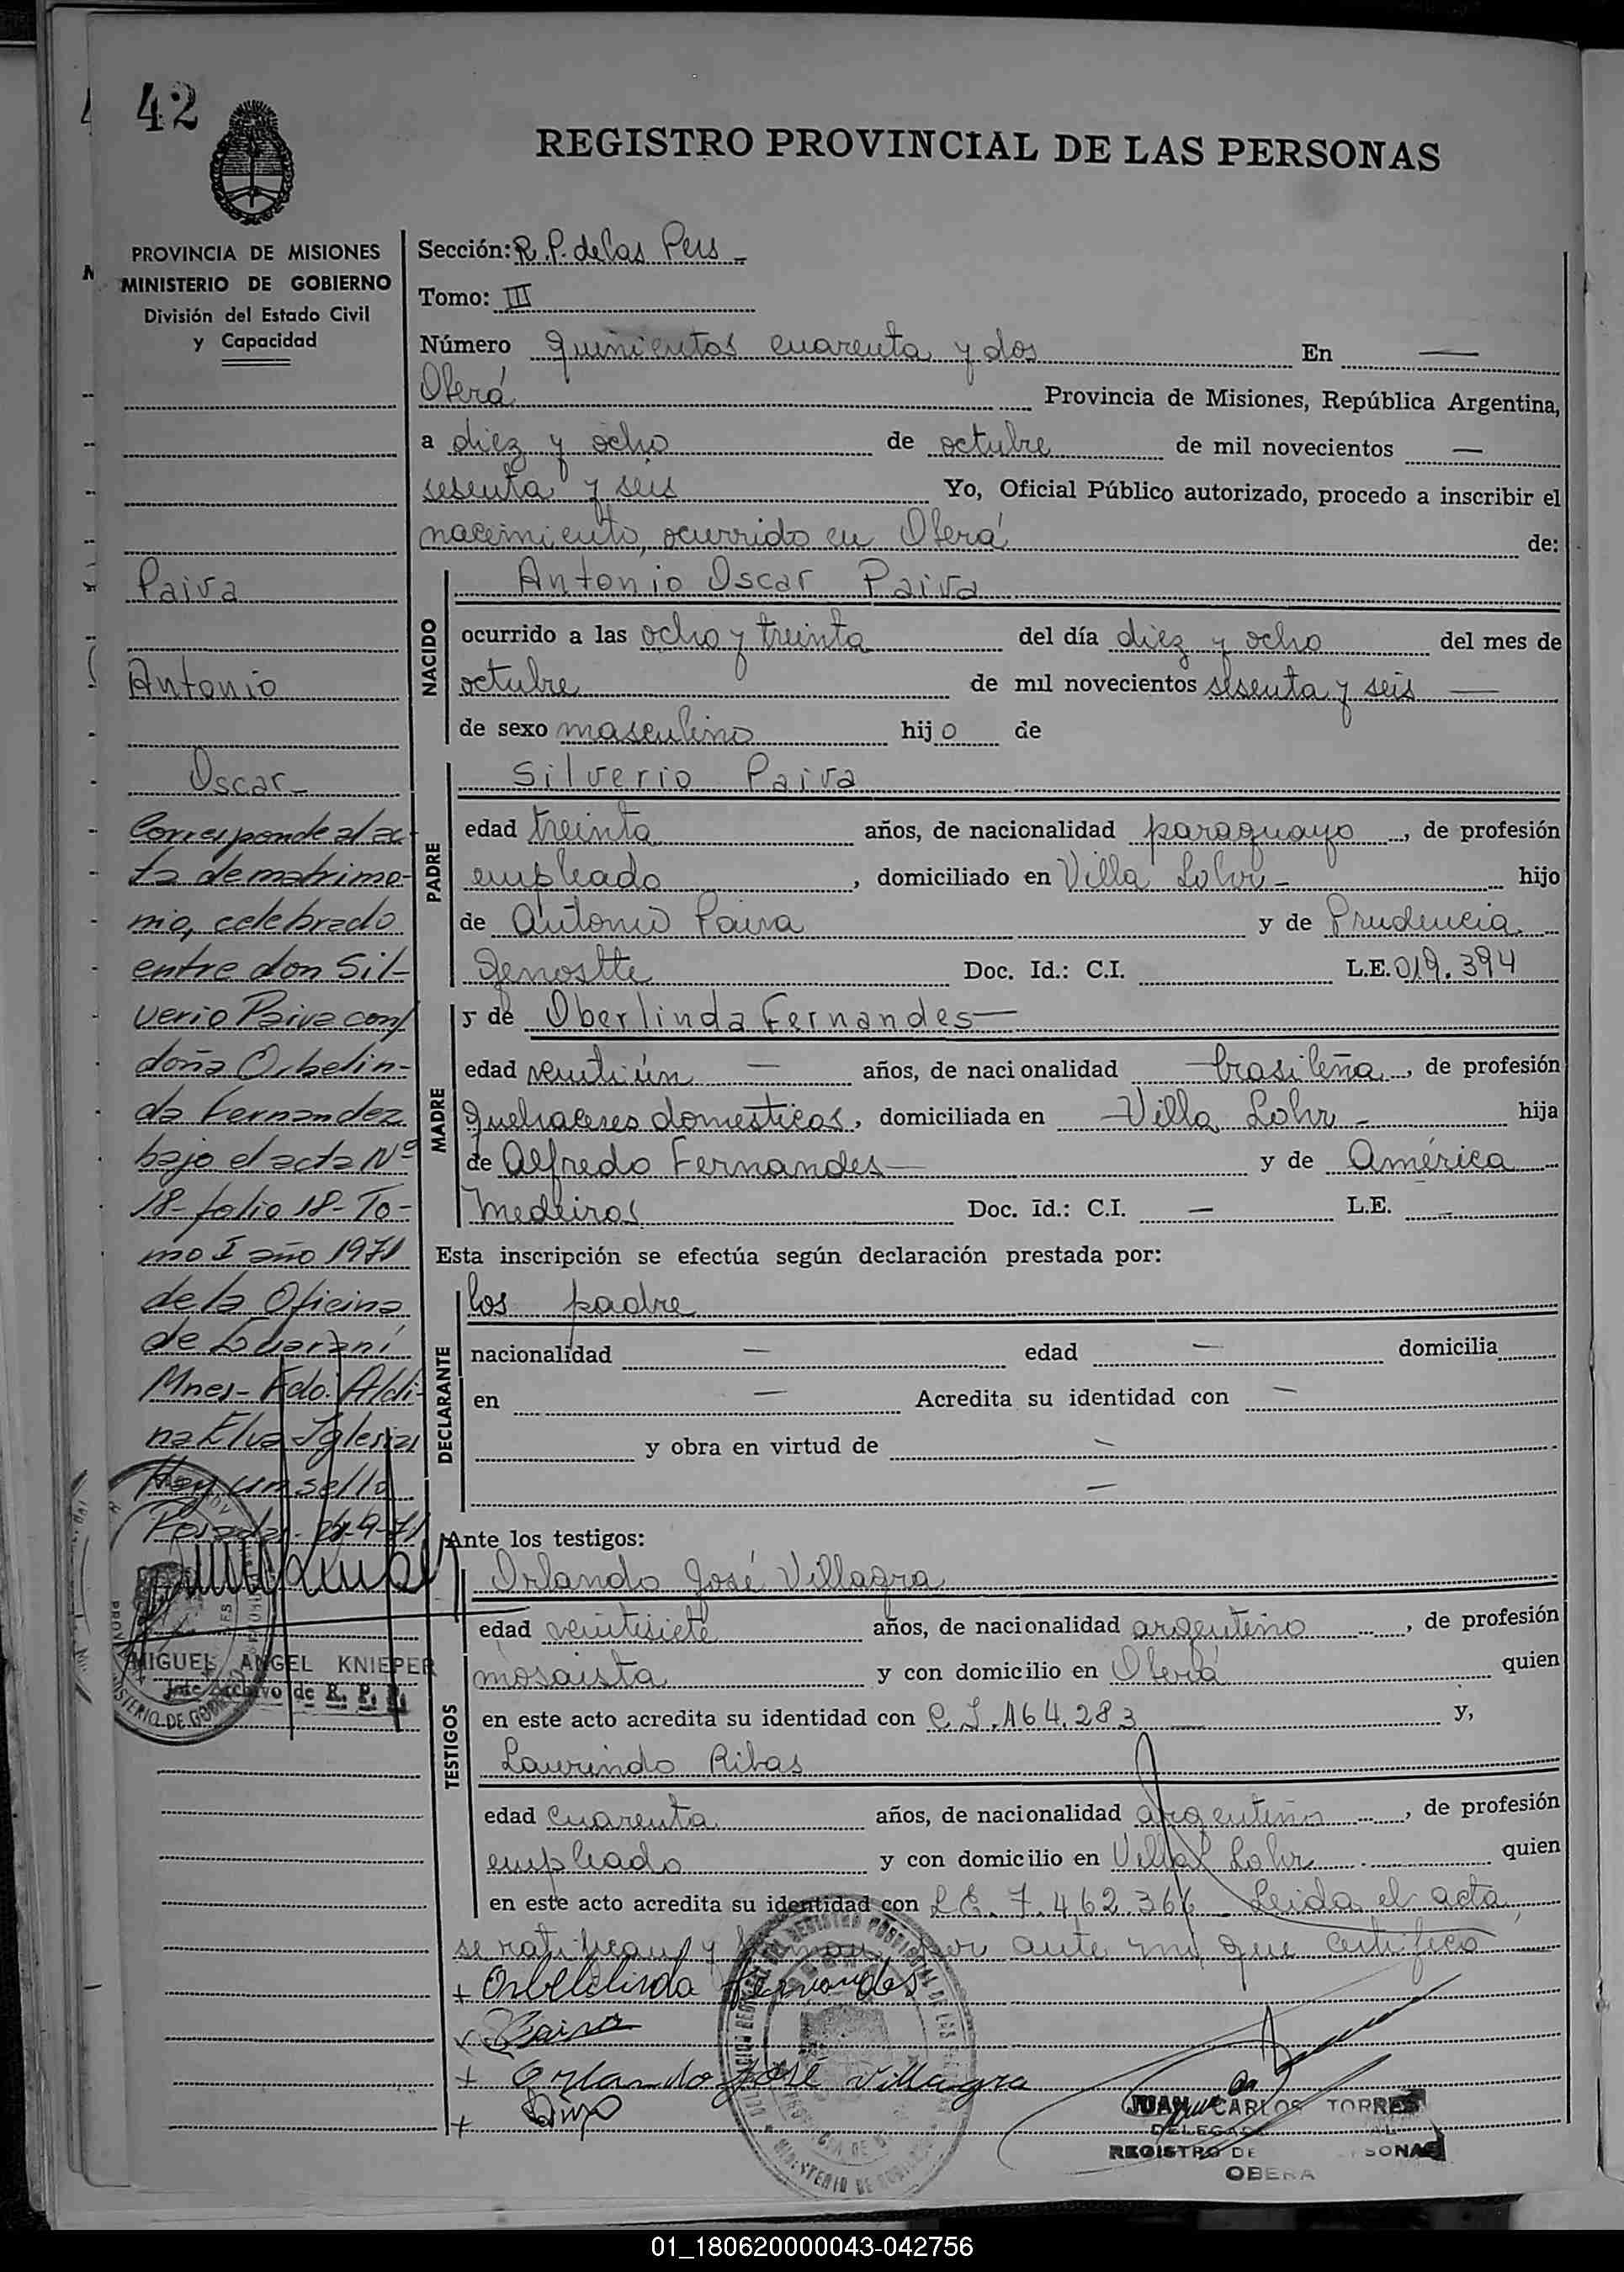 42
REGISTRO PROVINCIAL DE LAS PERSONAS
PROVINCIA DE MISIONES
MINISTERIO DE GOBIERNO
División del Estado Civil
y Capacidad
Sección: R. P. de las Pers -
Tomo: III
Número quinientos cuarenta y dos En —
Oberá Provincia de Misiones, República Argentina,
a diez y ocho de octubre de mil novecientos —
sesenta y seis Yo, Oficial Público autorizado, procedo a inscribir el
nacimiento, ocurrido en Oberá de:
Paiva
Antonio
Oscar -
NACIDO
Antonio Oscar Paiva
ocurrido a las ocho y treinta del día diez y ocho del mes de
octubre de mil novecientos sesenta y seis —
de sexo masculino hijo de
PADRE
Silverio Paiva
edad treinta años, de nacionalidad paraguayo, de profesión
empleado, domiciliado en Villa Lohr - hijo
de Antonio Paiva y de Prudencia
Doc. Id.: C.I. L.E. 019.394
MADRE
y de Oberlinda Fernandes —
edad ventiún — años, de nacionalidad brasileña, de profesión
quehaceres domesticos, domiciliada en — Villa Lohr - hija
de Alfredo Fernandes — y de América
Medeiros Doc. Id.: C.I. — L.E. —
Esta inscripción se efectúa según declaración prestada por:
DECLARANTE
los padre
nacionalidad — edad — domicilia
en — Acredita su identidad con —
y obra en virtud de —
—
Ante los testigos:
TESTIGOS
Orlando José Villagra
edad ventisiete años, de nacionalidad argentino, de profesión
mosaista y con domicilio en Oberá quien
en este acto acredita su identidad con C.I. 164.283 — y,
Laurindo Ribas
edad cuarenta años, de nacionalidad argentino, de profesión
empleado y con domicilio en Villa Lohr quien
en este acto acredita su identidad con L.E. 7.462.366 Leida el acta,
se ratifican y firman por ante mi que certifico
Fernandes
Paiva
Orlando José Villagra
JUAN CARLOS TORRES
REGISTRO DE
OBERA
Corresponde al ac-
ta de matrimo-
nio, celebrado
entre don Sil-
verio Paiva con
doña Orbelin-
da Fernandez
bajo el acta Nº
18 - folio 18 - To-
mo I año 1971
de la Oficina
de Guaraní
Mnes - Fdo: Aldi-
na Elva Iglesias
Hay un sello
Posadas
MIGUEL ANGEL KNIEPER
Jefe Archivo de R. P. P.
01_180620000043-042756